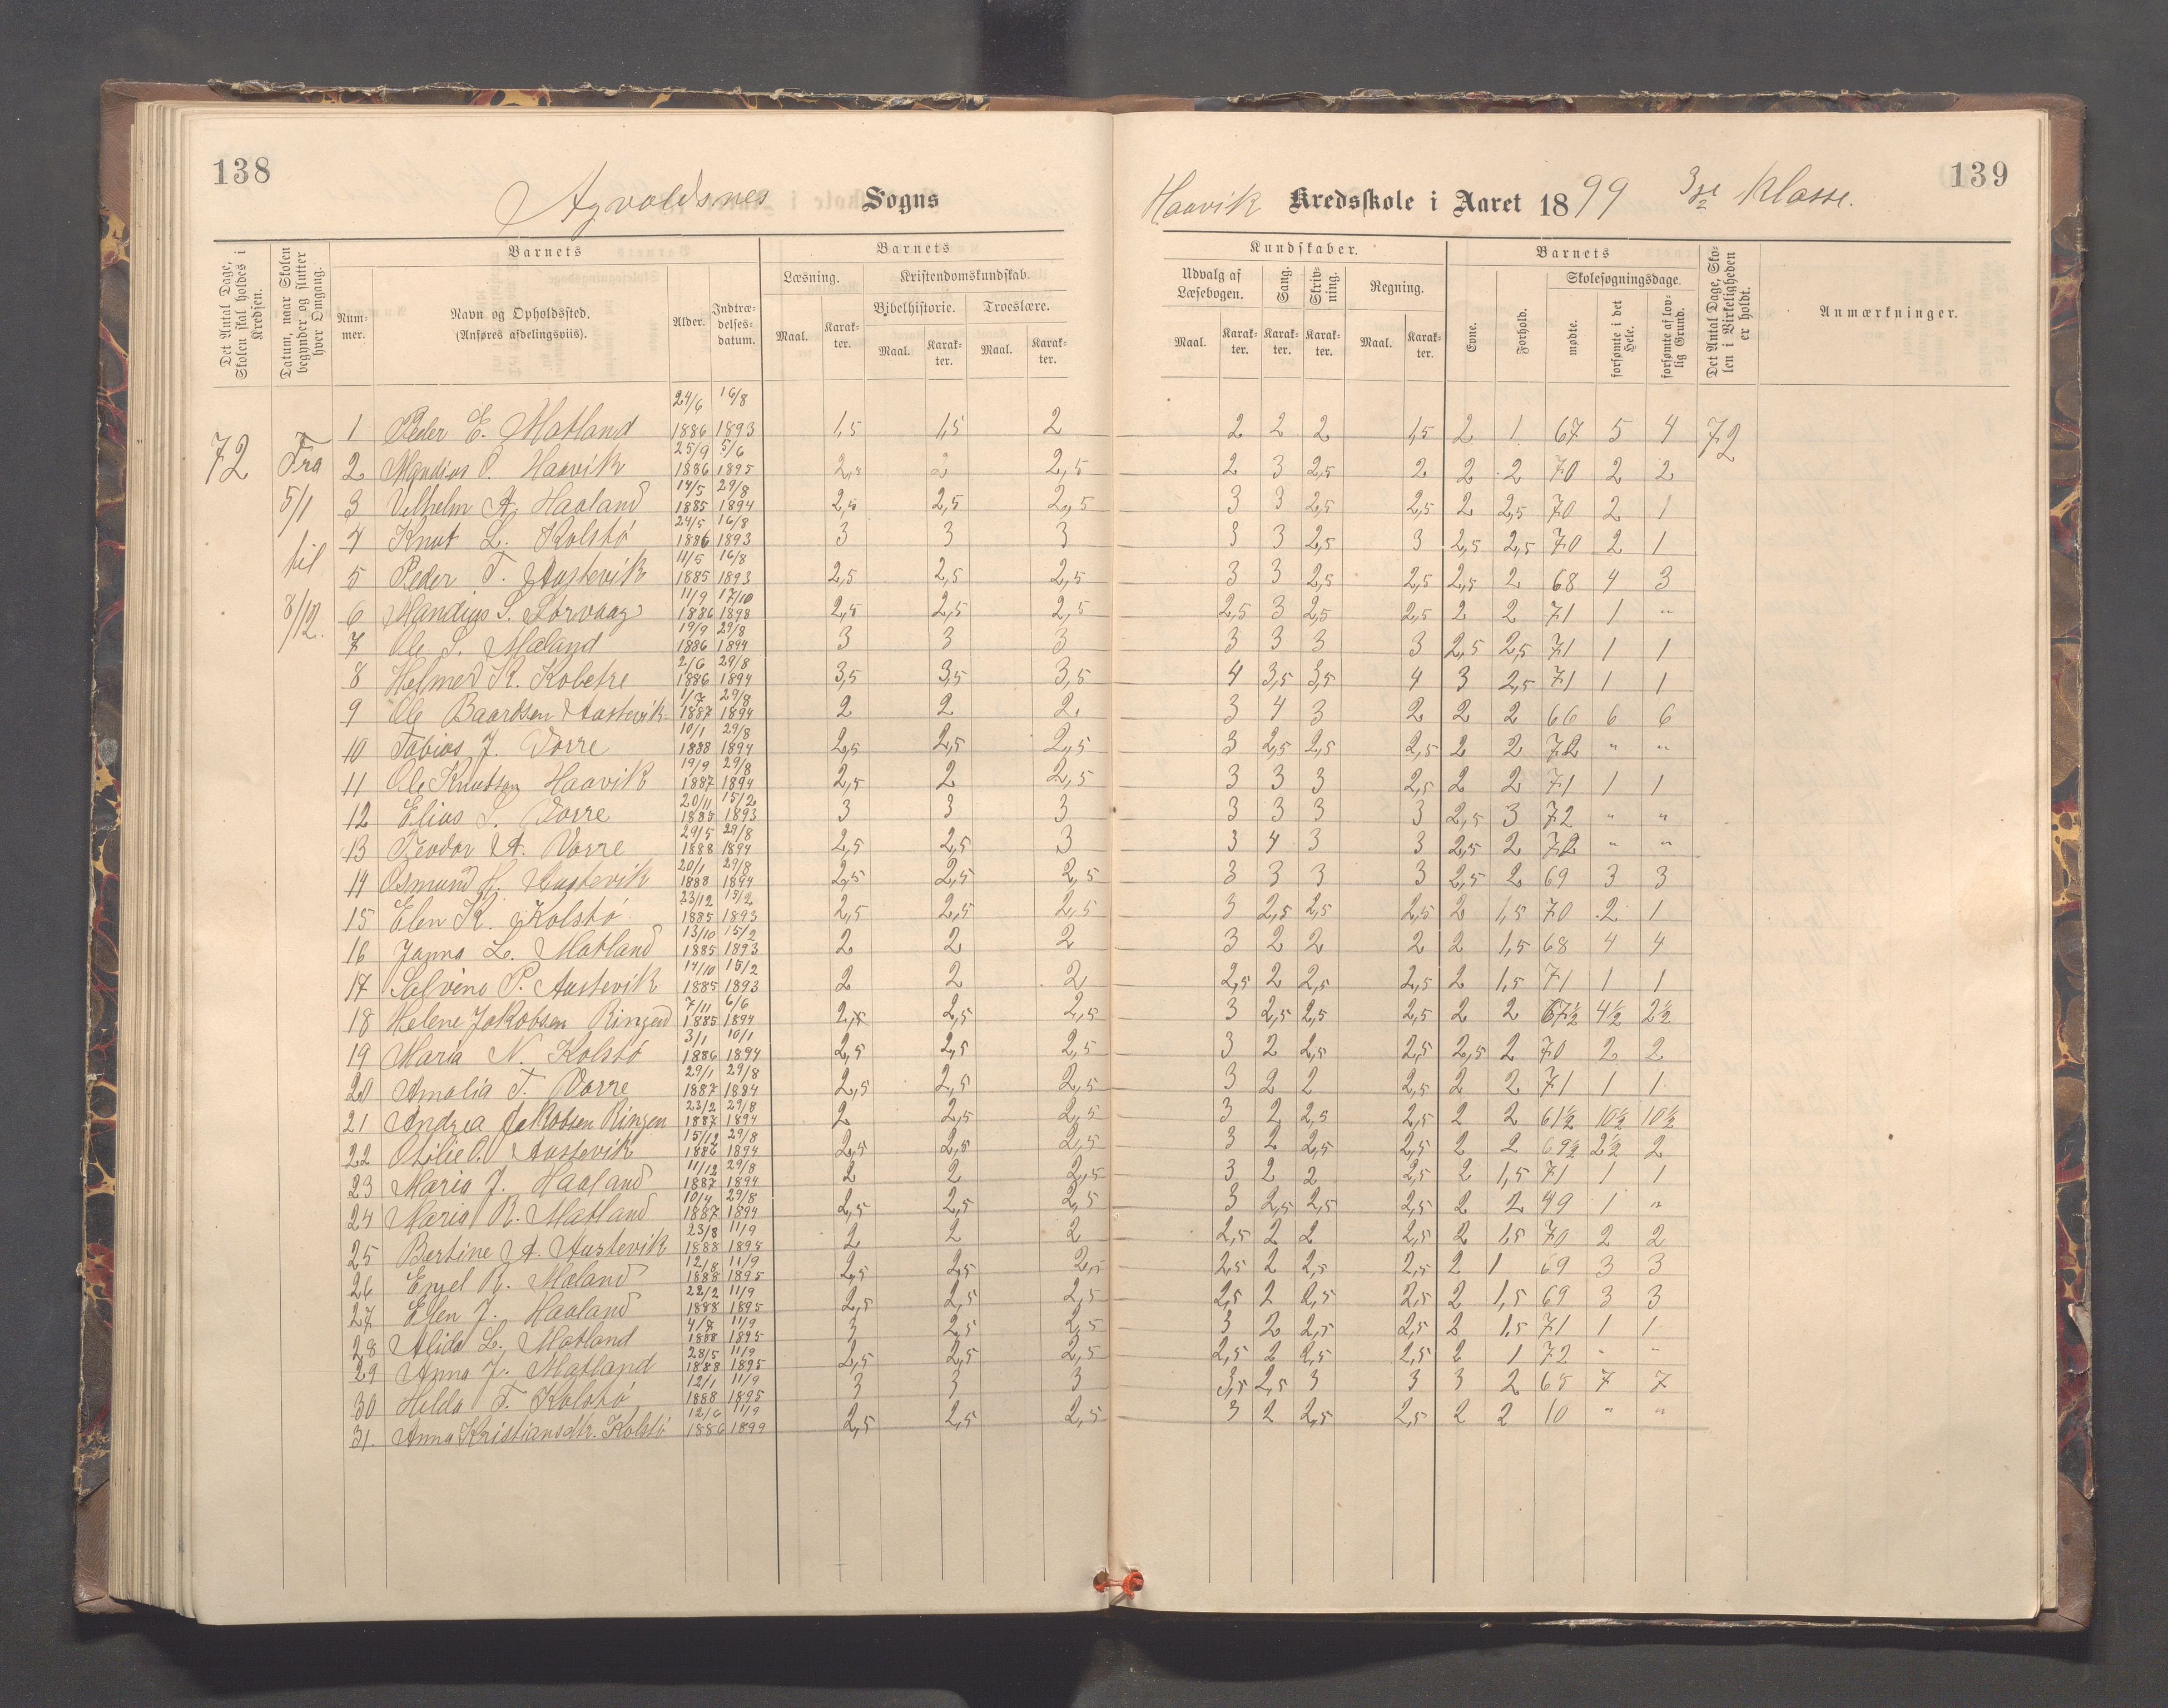 138
Agvoldsnes Sogns
Det Antal Dage, Skolen skal holdes i Kredsen.
Datum, naar Skolen begynder og slutter hver Omgang.
Barnets
Nummer.
Navn og Opholdssted. (Anføres afdelingsviis).
Alder.
Indtrædelsesdatum.
Barnets
Læsning.
Kristendomskundskab.
Bibelhistorie.
Troeslære.
Maal. Karakter. Maal. Karakter. Maal. Karakter.
72 Fra 5/1 til 8/12.
1 Peder E. Matland 24/6 1886 16/8 1893 1,5 1,5 2
2 Mandius O. Haavik 25/9 1886 5/6 1895 2,5 2 2,5
3 Vilhelm A. Haaland 14/5 1885 29/8 1894 2,5 2,5 2,5
4 Knut L. Kolstö 24/5 1886 16/8 1893 3 3 3
5 Peder T. Austevik 11/5 1885 16/8 1893 2,5 2,5 2,5
6 Mandius S. Sörvaag 11/9 1886 17/10 1898 2,5 2,5 2,5
7 Ole S. Mæland 19/9 1886 29/8 1894 3 3 3
8 Helmer K. 2/6 1886 29/8 1894 3,5 3,5 3,5
9 Ole Baardsen Austevik 1/7 1887 29/8 1894 2 2 2
10 Tobias J. Vorre 10/1 1888 29/8 1894 2,5 2,5 2,5
11 Ole Knutsen Haavik 19/9 1887 29/8 1894 2,5 2 2,5
12 Elias S. Vorre 20/11 1885 15/2 1893 3 3 3
13 Teodor A. Vorre 29/5 1888 29/8 1894 2,5 2,5 3
14 Osmund H. Austevik 20/1 1888 29/8 1894 2,5 2,5 2,5
15 Elen K. Kolstö 23/12 1885 15/2 1893 2,5 2,5 2,5
16 Janna L. Matland 13/10 1885 15/2 1893 2 2 2
17 Salvine P. Austevik 14/10 1885 15/2 1893 2 2 2
18 Helene Jakobsen Ringen 7/11 1885 6/6 1894 2,5 2,5 2,5
19 Maria N. Kolstö 3/1 1886 10/1 1894 2,5 2,5 2,5
20 Amalia T. Vorre 29/1 1887 29/8 1884 2,5 2,5 2,5
21 Andrea Jakobsen Ringen 23/2 1887 29/8 1894 2 2,5 2,5
22 Otilie O. Austevik 15/12 1886 29/8 1894 2,5 2,5 2,5
23 Maria J. Haaland 11/12 1887 29/8 1894 2 2 2,5
24 Maria R. Matland 10/4 1887 29/8 1894 2,5 2,5 2,5
25 Bertine A. Austevik 23/8 1888 11/9 1895 2 2 2
26 Engel R. Mæland 12/8 1888 11/9 1895 2,5 2,5 2,5
27 Elen J. Haaland 22/2 1888 11/9 1895 2,5 2,5 2,5
28 Alida L. Matland 4/7 1888 11/9 1895 3 2,5 2,5
29 Anna J. Matland 28/5 1888 11/9 1895 2,5 2,5 2,5
30 Helda T. Kolstö 12/1 1888 11/9 1895 3 3 3
31. Anna Kristiansdtr. Kolstö 12/6 1886 11/9 1899 2,5 2,5 2,5
139
Haavik Kredsskole i Aaret 1899 3die Klasse.
Kundskaber.
Udvalg af Læsebogen.
Sang.
Skrivning.
Regning.
Maal. Karakter. Karakter. Karakter. Maal. Karakter.
Barnets
Evne.
Forhold.
Skolesøgningsdage.
mødte.
forsømte i det Hele.
forsømte af lovlig Grund.
Det Antal Dage, Skolen i Virkeligheden er holdt.
Anmærkninger.
2 2 2 1,5 2 1 67 5 4 72
2 3 2,5 2 2 2 70 2 2
3 3 2,5 2,5 2 2,5 70 2 1
3 3 2,5 3 2,5 2,5 70 2 1
3 3 2,5 2,5 2,5 2 68 4 3
2,5 3 2,5 2,5 2 2 71 1 "
3 3 3 3 2,5 2,5 71 1 1
4 3,5 3,5 4 3 2,5 71 1 1
3 4 3 2 2 2 66 6 6
3 2,5 2,5 2,5 2 2 72 " "
3 3 3 2,5 2 2 71 1 1
3 3 3 3 2,5 3 72 " "
3 4 3 3 2,5 2 72 " "
3 3 3 3 2,5 2 69 3 3
3 2,5 2,5 2,5 2 1,5 70 2 1
3 2 2 2 2 1,5 68 4 4
2,5 2 2,5 2,5 2 1,5 71 1 1
3 2,5 2,5 2,5 2 2 67½ 4½ 2½
3 2 2,5 2,5 2,5 2 70 2 2
3 2 2 2,5 2 2 71 1 1
3 2 2,5 2,5 2 2 61½ 10½ 10½
3 2 2,5 2,5 2 2 69½ 2½ 2
3 2 2 2,5 2 1,5 71 1 1
3 2,5 2,5 2,5 2 2 49 1 "
2,5 2 2 2,5 2 1,5 70 2 2
2,5 2 2,5 2,5 2 1 69 3 3
2,5 2 2,5 2,5 2 1,5 69 3 3
3 2 2,5 2,5 2 1,5 71 1 1
2,5 2 2,5 2,5 2 1 72 " "
3,5 2,5 3 3 3 2 65 7 7
3 2 2,5 2,5 2 2 10 " "